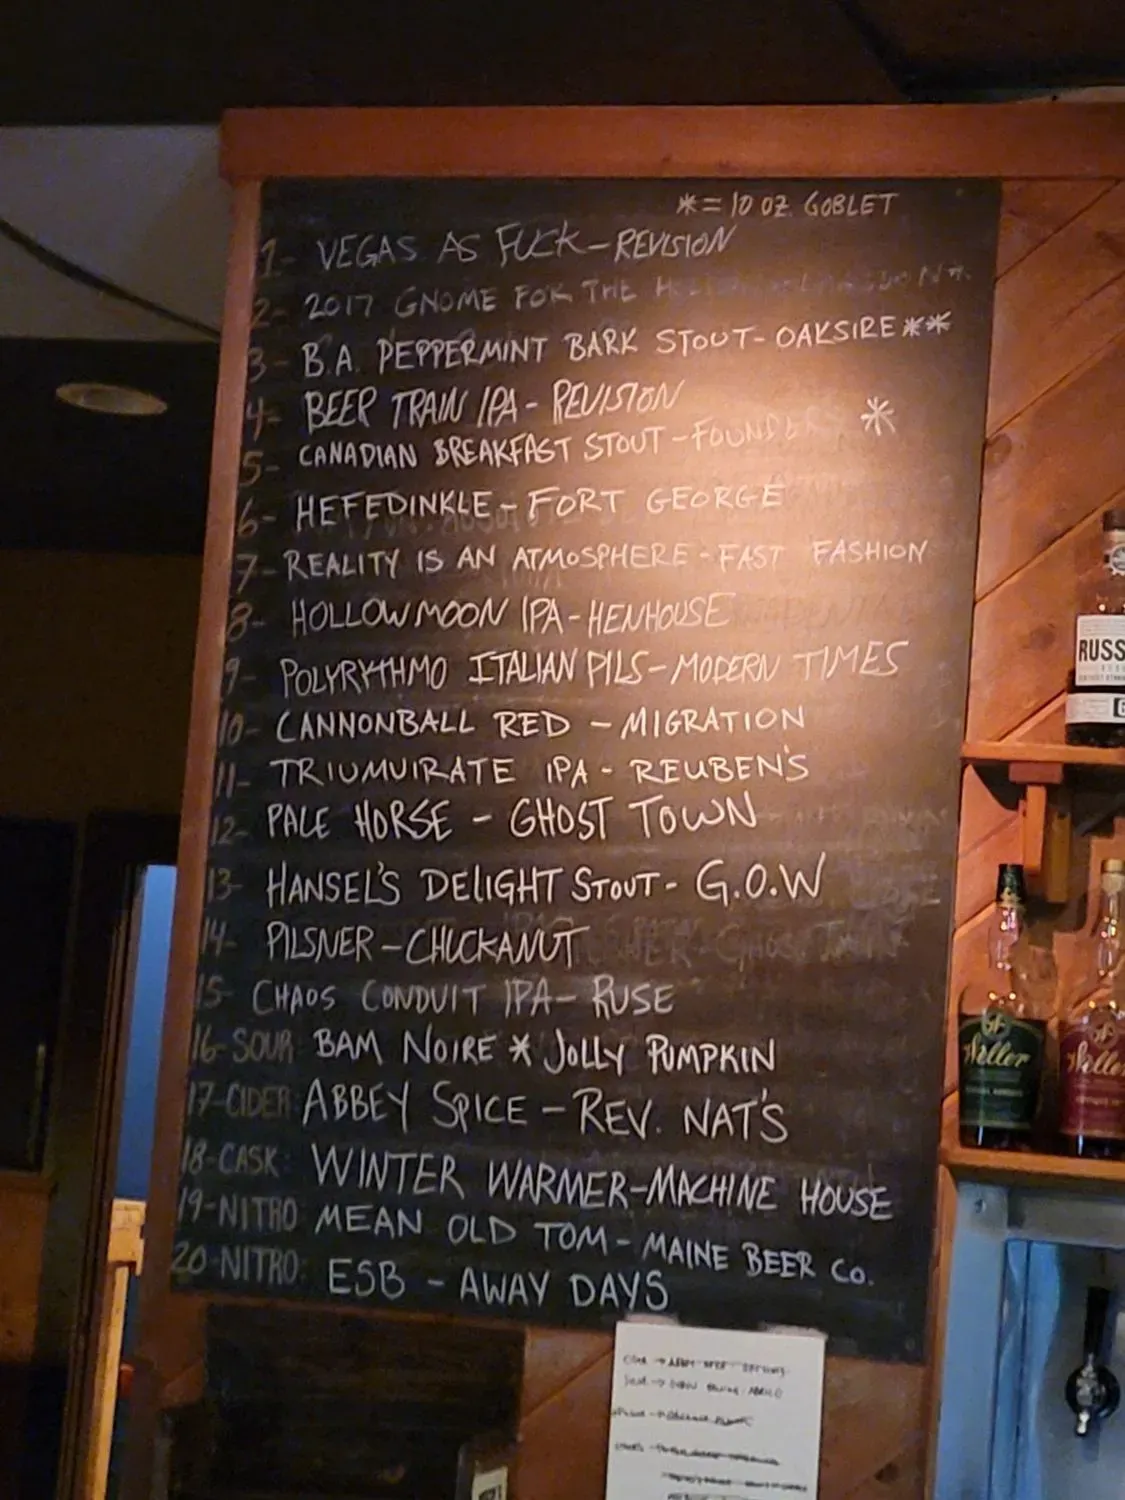 *= 10 OZ. GOBLET
1- VEGAS AS FUCK - REVISION
2- 2017 GNOME FOR THE
3- B.A. PEPPERMINT BARK STOUT - OAKSIRE **
4- BEER TRAIN IPA - REVISION
5- CANADIAN BREAKFAST STOUT - FOUNDERS *
6- HEFEDINKLE - FORT GEORGE
7- REALITY IS AN ATMOSPHERE - FAST FASHION
8- HOLLOW MOON IPA - HENHOUSE
9- POLYRYTHMO ITALIAN PILS - MODERN TIMES
10- CANNONBALL RED - MIGRATION
11- TRIUMVIRATE IPA - REUBEN'S
12- PALE HORSE - GHOST TOWN
13- HANSEL'S DELIGHT STOUT - G.O.W
14- PILSNER - CHUCKANUT
15- CHAOS CONDUIT IPA - RUSE
16- SOUR BAM NOIRE * JOLLY PUMPKIN
17- CIDER: ABBEY SPICE - REV. NAT'S
18- CASK: WINTER WARMER - MACHINE HOUSE
19- NITRO MEAN OLD TOM - MAINE BEER CO.
20- NITRO: ESB - AWAY DAYS
RUSS
Weller
Weller